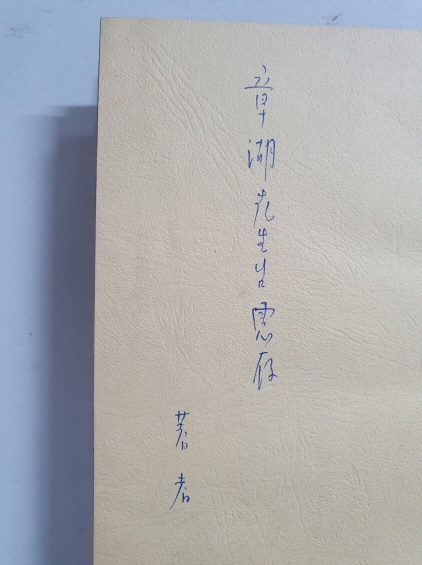 章湖先生惠存
著者